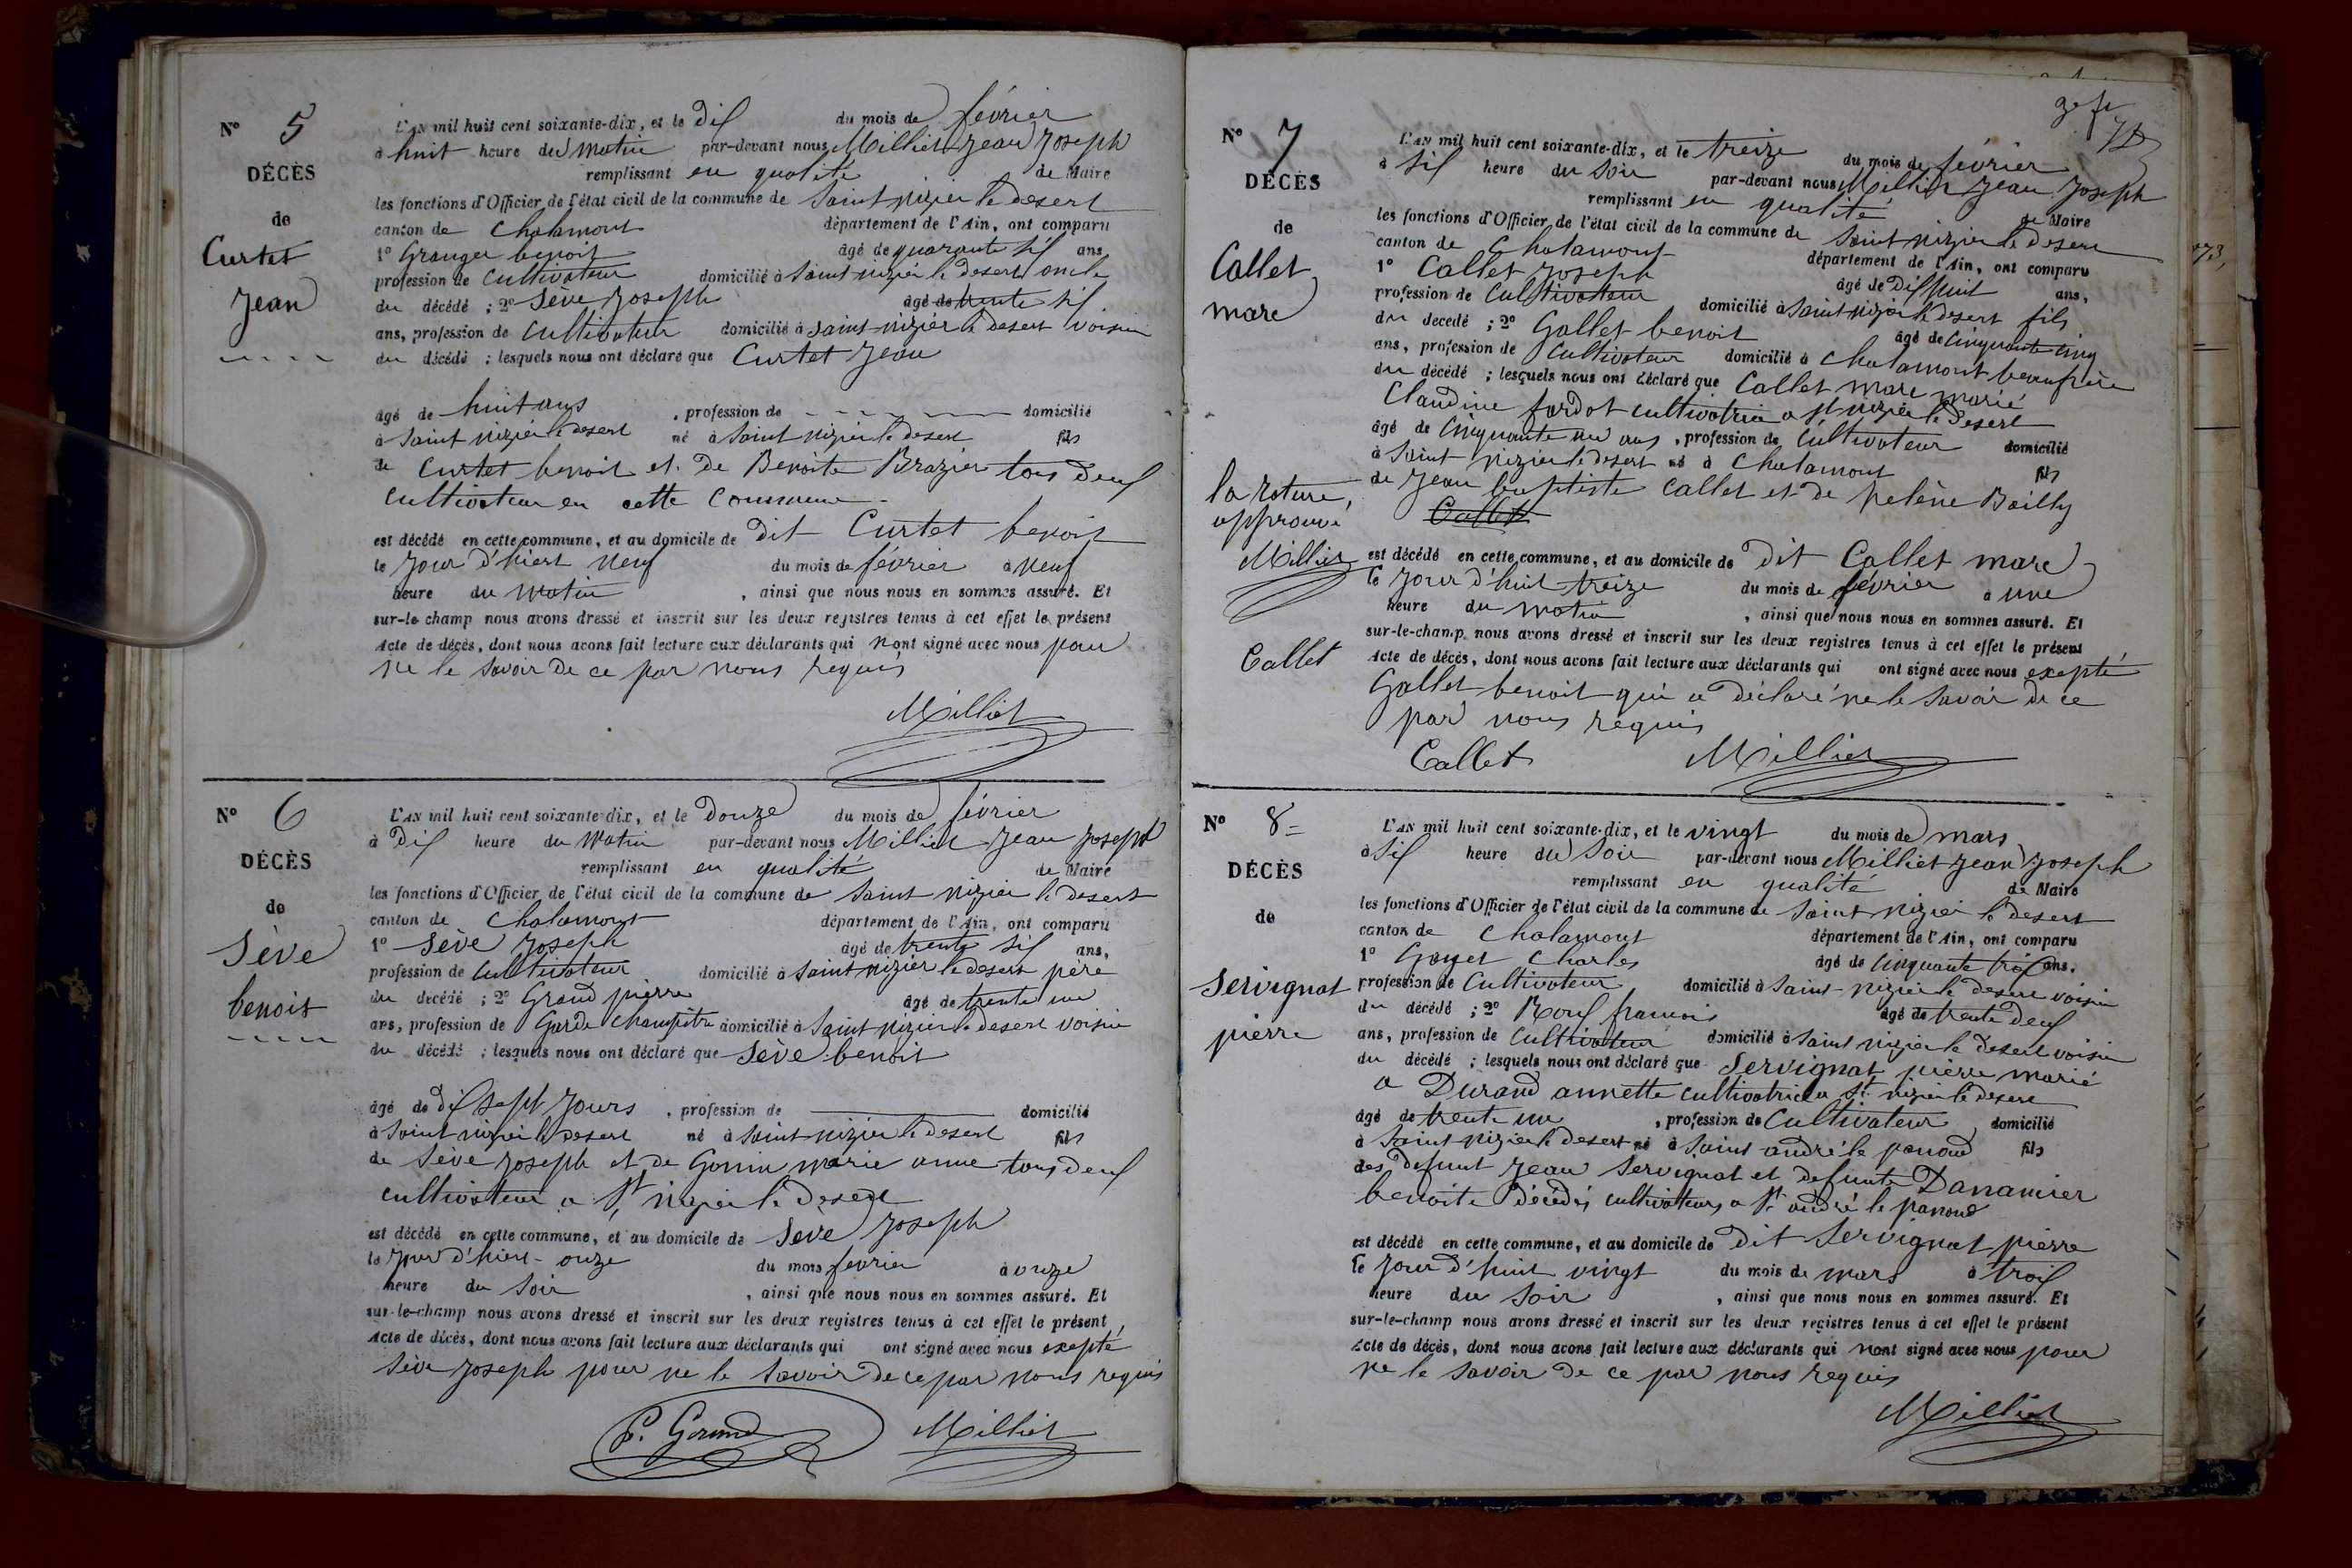 N° 5
DÉCÈS
de
Curtet
Jean
L'AN mil huit cent soixante-dix, et le dix du mois de février
à huit heure du matin par-devant nous Milliet Jean Joseph
remplissant en qualité de Maire
les fonctions d'Officier de l'état civil de la commune de Saint nizier le desert
canton de Chalamont département de l'Ain, ont comparu
1° Granger benoit âgé de quarante six ans,
profession de cultivateur domicilié à Saint nizier le desert oncle
du décédé ; 2° Seve Joseph âgé de trente six
ans, profession de cultivateur domicilié à Saint nizier le desert voisin
du décédé ; lesquels nous ont déclaré que Curtet Jean
âgé de huit ans , profession de domicilié
à Saint nizier le desert né à Saint nizier le desert fils
de Curtet benoit et de Benoite Brazier tous deux
cultivateur en cette commune
est décédé en cette commune, et au domicile de dit Curtet benoit
le jour d'hiert neuf du mois de février à neuf
heure du matin , ainsi que nous nous en sommes assuré. Et
sur-le-champ nous avons dressé et inscrit sur les deux registres tenus à cet effet le présent
Acte de décès, dont nous avons fait lecture aux déclarants qui n'ont signé avec nous pour
ne le savoir de ce par nous requis
Milliet
N° 6
DÉCÈS
de
Sève
benoit
L'AN mil huit cent soixante-dix, et le douze du mois de février
à dix heure du matin par-devant nous Milliet Jean Joseph
remplissant en qualité de Maire
les fonctions d'Officier de l'état civil de la commune de Saint nizier le desert
canton de Chalamont département de l'Ain, ont comparu
1° Sève Joseph âgé de trente six ans,
profession de cultivateur domicilié à Saint nizier le desert père
du décédé ; 2° Grand pierre âgé de trente un
ans, profession de Garde champêtre domicilié à Saint nizier le desert voisin
du décédé ; lesquels nous ont déclaré que Sève benoit
âgé de dix sept jours , profession de domicilié
à Saint nizier le desert né à Saint nizier le desert fils
de Sève Joseph et de Gonin marie anne tous deux
cultivateur a St nizier le desert
est décédé en cette commune, et au domicile de Seve Joseph
le jour d'hiert onze du mois fevrier à onze
heure du soir , ainsi que nous nous en sommes assuré. Et
sur-le-champ nous avons dressé et inscrit sur les deux registres tenus à cet effet le présent
Acte de décès, dont nous avons fait lecture aux déclarants qui ont signé avec nous exepté
Sève Joseph pour ne le savoir de ce par nous requis
P. Grand Milliet
N° 7
DÉCÈS
de
Callet
marc
la rature
approuvé
Milliet
Callet
L'AN mil huit cent soixante-dix, et le treize du mois de février
à six heure du soir par-devant nous Milliet Jean Joseph
remplissant en qualité de Maire
les fonctions d'Officier de l'état civil de la commune de Saint nizier le desert
canton de Chalamont département de l'Ain, ont comparu
1° Callet Joseph âgé de dix huit ans,
profession de cultivateur domicilié à Saint nizier le desert fils
du décédé ; 2° Gallet benoit âgé de cinquante cinq
ans, profession de cultivateur domicilié à Chalamont beaufrère
du décédé ; lesquels nous ont déclaré que Callet marc marié
Claudine fardot cultivatrice a St nizier le desert
âgé de cinquante un ans , profession de cultivateur domicilié
à Saint nizier le desert né à Chalamont fils
de Jean baptiste Callet et de helène Bailly
Callet
est décédé en cette commune, et au domicile de dit Callet marc
le jour d'huit treize du mois de février à une
heure du matin , ainsi que nous nous en sommes assuré. Et
sur-le-champ nous avons dressé et inscrit sur les deux registres tenus à cet effet le présent
Acte de décès, dont nous avons fait lecture aux déclarants qui ont signé avec nous exepté
Gallet benoit qui a déclaré ne le savoir de ce
par nous requis
Callet Milliet
N° 8
DÉCÈS
de
Servignat
pierre
L'AN mil huit cent soixante-dix, et le vingt du mois de mars
à six heure du soir par-devant nous Milliet Jean Joseph
remplissant en qualité de Maire
les fonctions d'Officier de l'état civil de la commune de Saint nizier le desert
canton de Chalamont département de l'Ain, ont comparu
1° Goyet Charles âgé de cinquante trois ans,
profession de cultivateur domicilié à Saint nizier le desert voisin
du décédé ; 2° françois âgé de trente deux
ans, profession de cultivateur domicilié à Saint nizier le desert voisin
du décédé ; lesquels nous ont déclaré que Servignat pierre marié
a Durand annette cultivatrice a St nizier le desert
âgé de trente un , profession de cultivateur domicilié
à Saint nizier le desert né à Saint andré le panoud fils
des defunt Jean Servignat et defunte Dananier
benoite décédés cultivateurs a St andré le panoud
est décédé en cette commune, et au domicile de dit Servignat pierre
le jour d'huit vingt du mois de mars à trois
heure du soir , ainsi que nous nous en sommes assuré. Et
sur-le-champ nous avons dressé et inscrit sur les deux registres tenus à cet effet le présent
Acte de décès, dont nous avons fait lecture aux déclarants qui n'ont signé avec nous pour
ne le savoir de ce par nous requis
Milliet